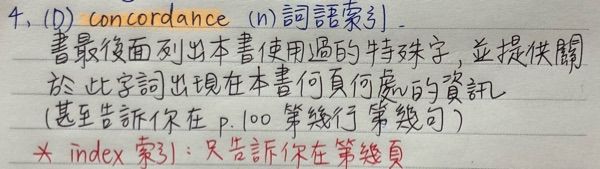 4. (D) concordance (n) 詞語索引.
書最後面列出本書使用過的特殊字, 並提供關
於此字詞出現在本書何頁何處的資訊
(甚至告訴你在 p.100 第幾行第幾句)
* index 索引: 只告訴你在第幾頁